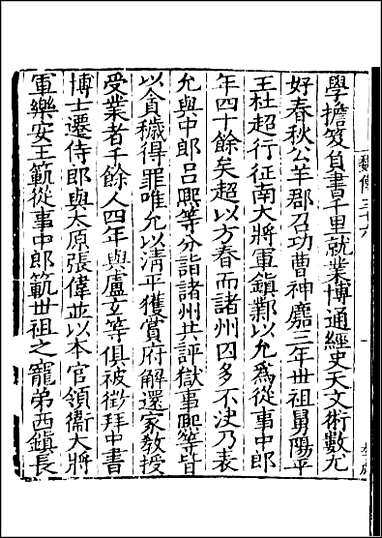 學擔笈負書千里就業博通經史天文術數尤
好春秋公羊郡召功曹神䴥三年世祖舅陽平
王杜超行征南大將軍鎮鄴以允為從事中郎
年四十餘矣超以方春而諸州囚多不決乃表
允與中郎呂熙等分詣諸州共評獄事熙等皆
以貪穢得罪唯允以清平獲賞府解還家教授
受業者千餘人四年與盧玄等俱被徵拜中書
博士遷侍郎與太原張偉並以本官領衞大將
軍樂安王範從事中郎範世祖之寵弟西鎮長
魏傳三十六